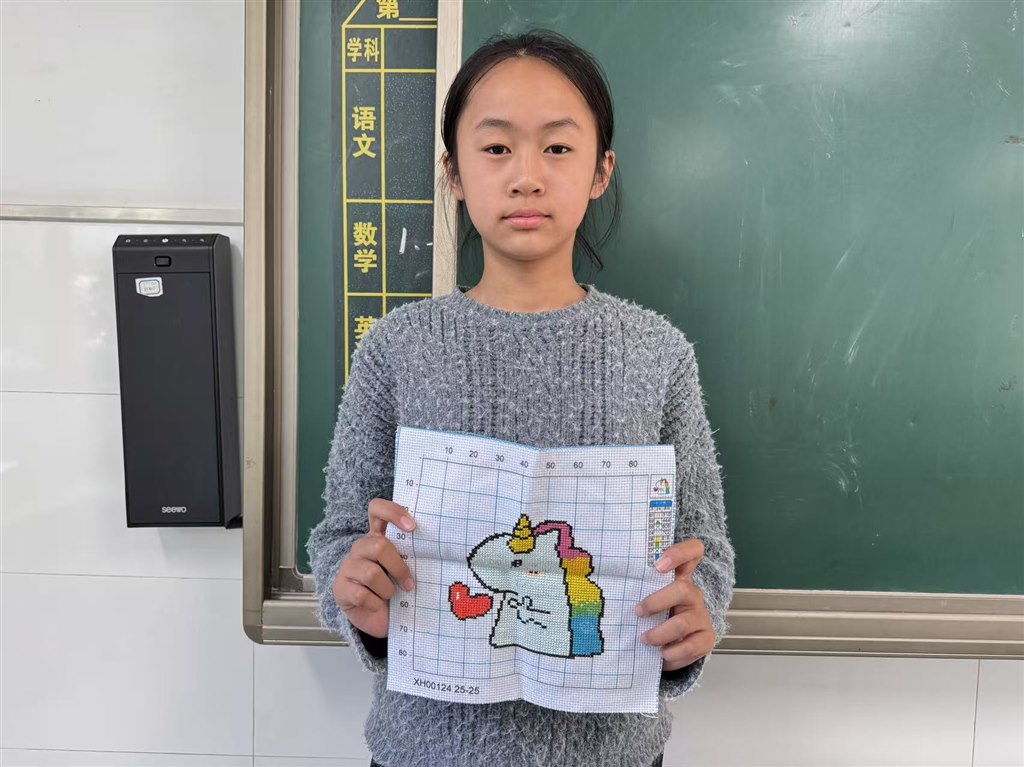 第
学科
语文
数学
英
1
seewo
10 20 30 40 50 60 70 80
10
30
60
70
80
XH00124 25-25